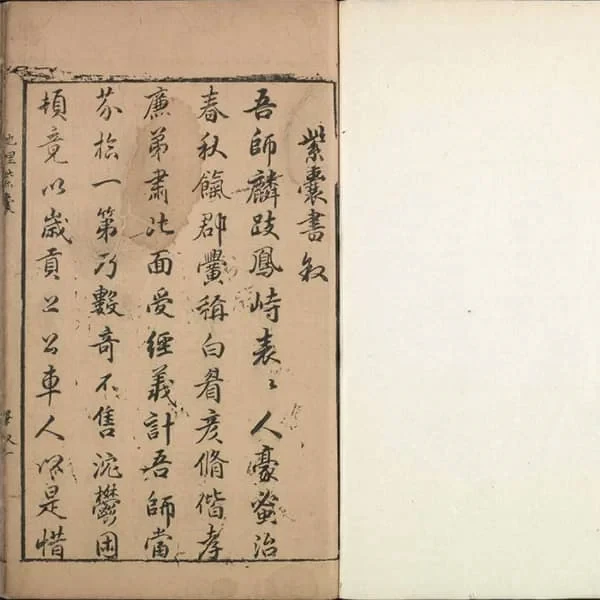 紫囊書叙
吾師麟跂鳳峙表〻人豪蚤治
春秋餼郡黌稱白眉彦脩偕孝
廉弟肅北面受經義計吾師當
芥拾一第乃數奇不售沱鬱困
頓竟以歲貢上公車人以是惜
地理紫囊